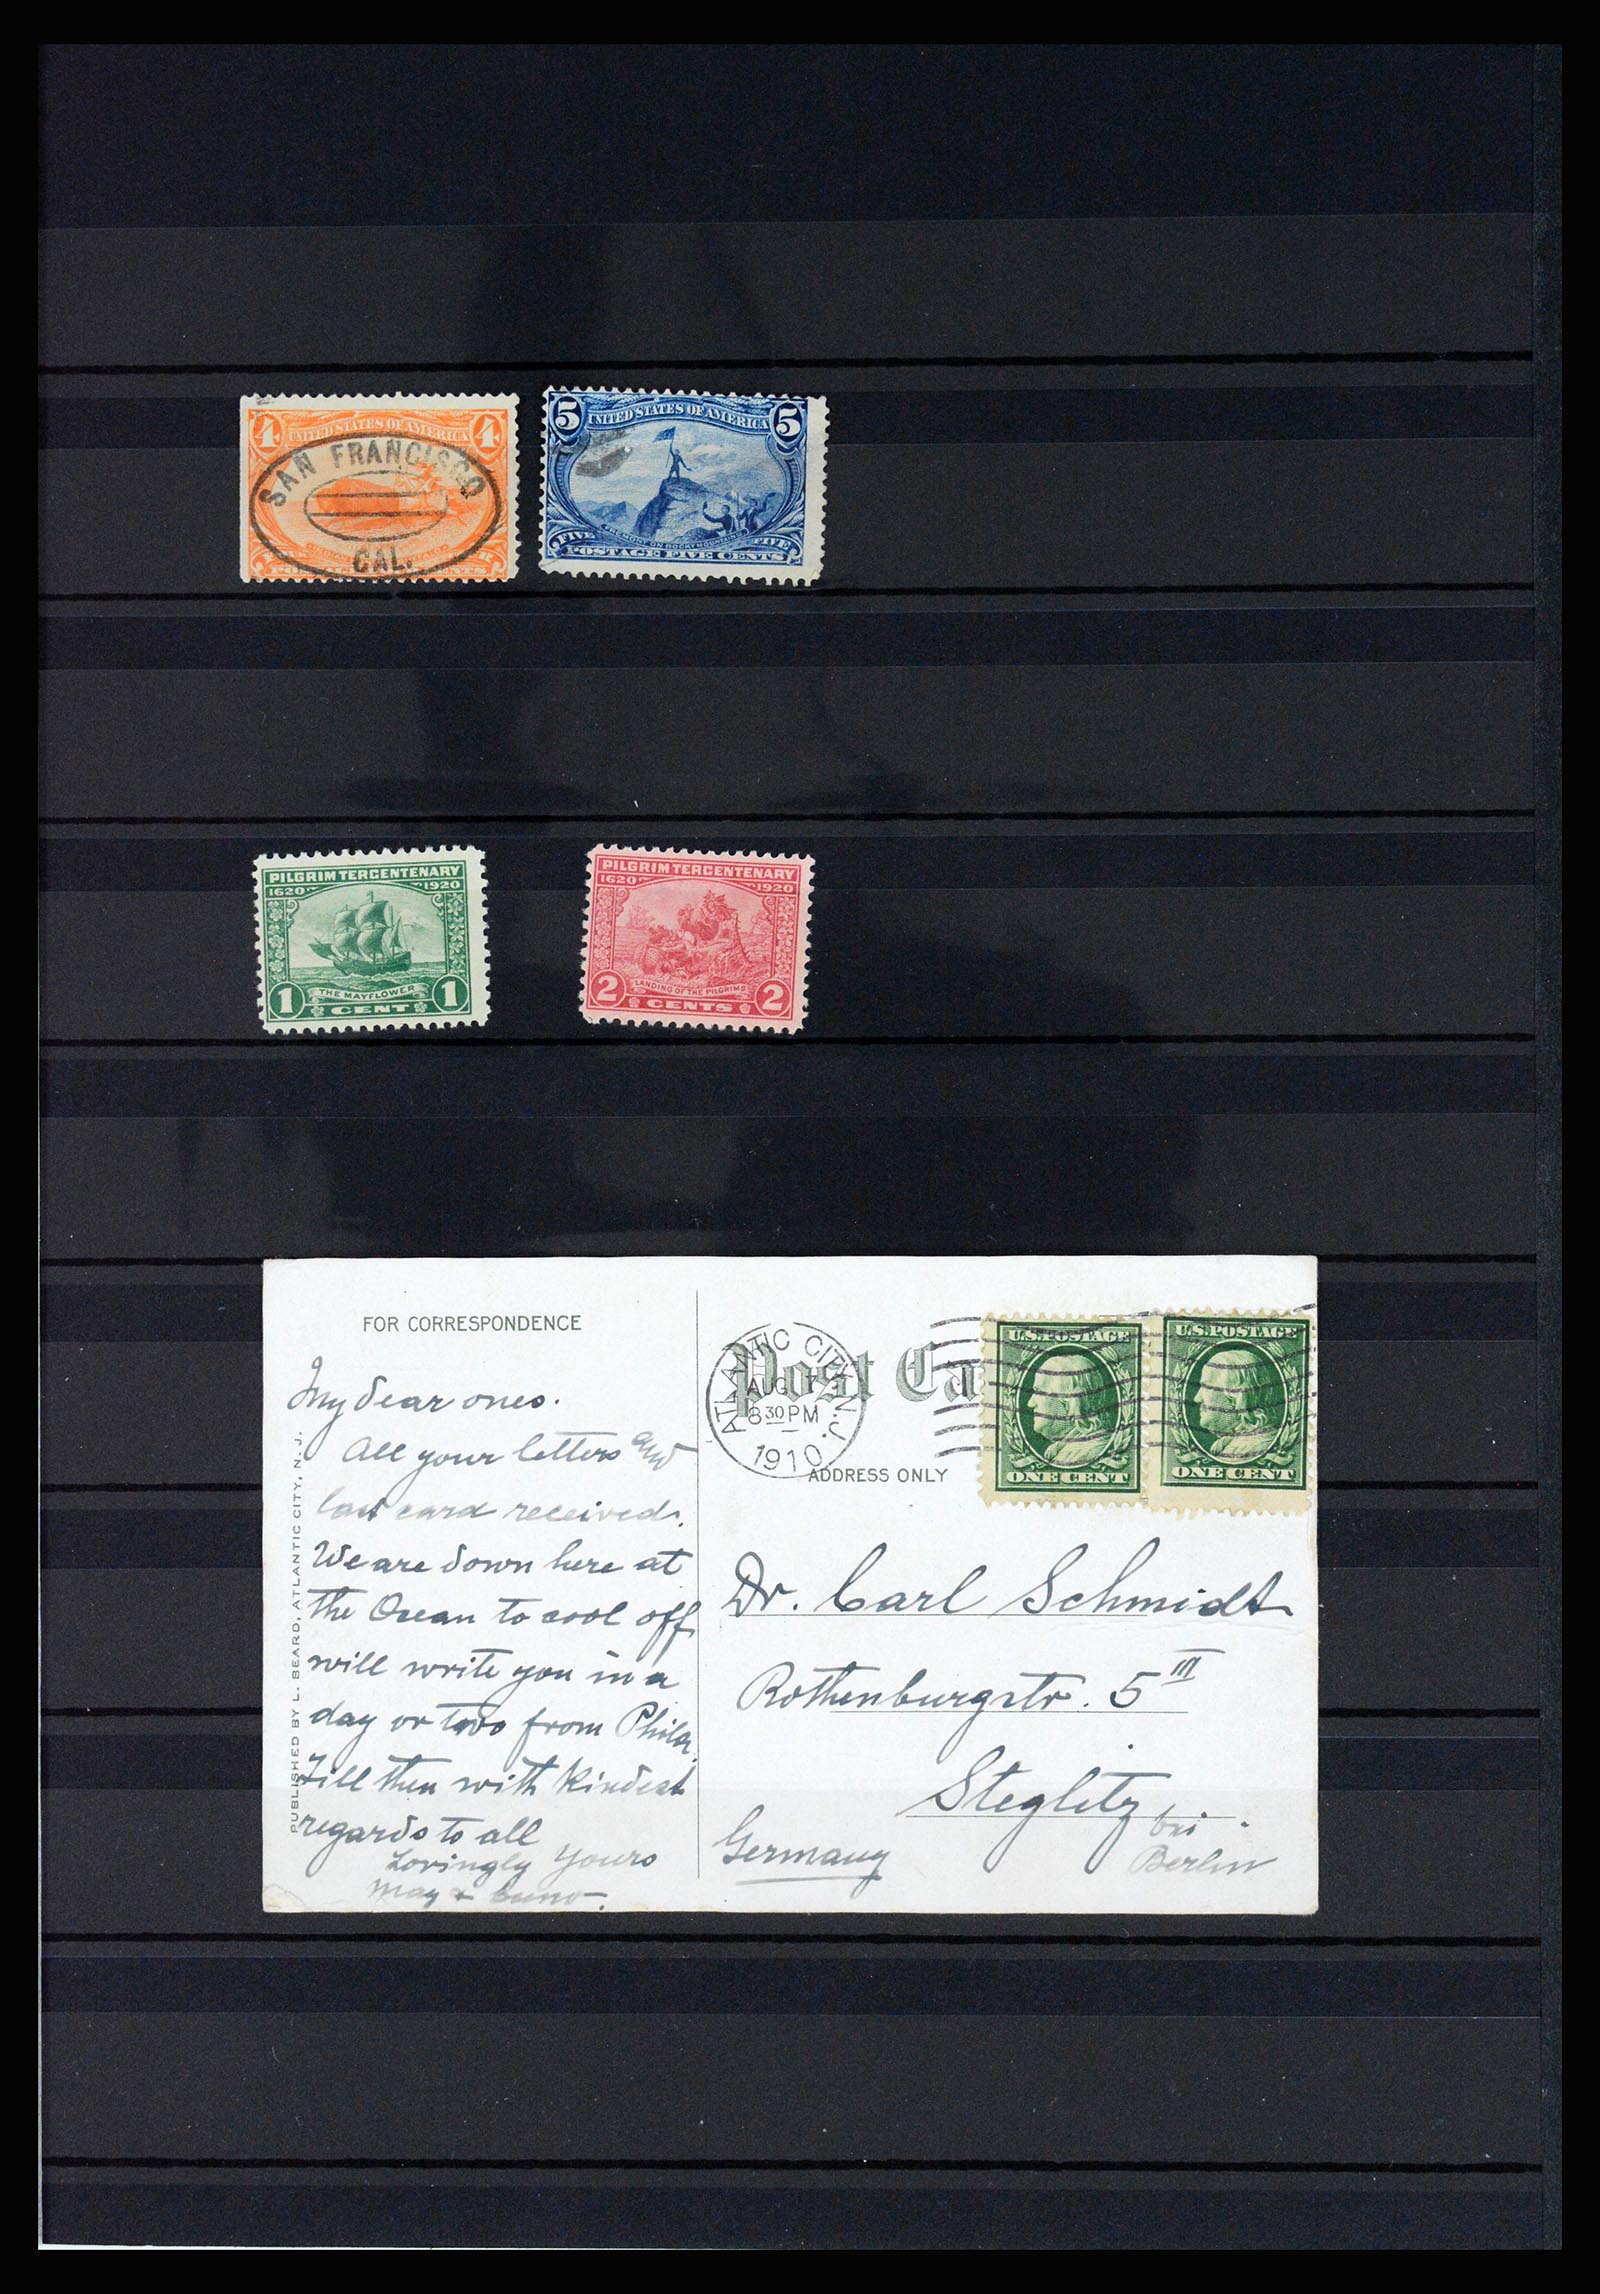 4 UNITED STATES OF AMERICA 4
SAN FRANCISCO
CAL.
5 UNITED STATES OF AMERICA 5
FREMONT ON ROCKY MOUNTAINS
FIVE FIVE
POSTAGE FIVE CENTS
PILGRIM TERCENTENARY
1620 1920
THE MAYFLOWER
1 CENT 1
PILGRIM TERCENTENARY
1620 1920
LANDING OF THE PILGRIMS
2 CENTS 2
FOR CORRESPONDENCE
My dear ones.
All your letters and
last card received.
We are down here at
the Ocean to cool off
will write you in a
day or two from Phila.
Till then with kindest
regards to all
Lovingly Yours
May + Cuno.
PUBLISHED BY L. BEARD, ATLANTIC CITY, N. J.
Post Ca
ATLANTIC CITY, N.J.
AUG 17
830 PM
1910
ADDRESS ONLY
U.S. POSTAGE
ONE CENT
U.S. POSTAGE
ONE CENT
Dr. Carl Schmidt
Rothenburgstr. 5 III
Steglitz bei
Germany Berlin